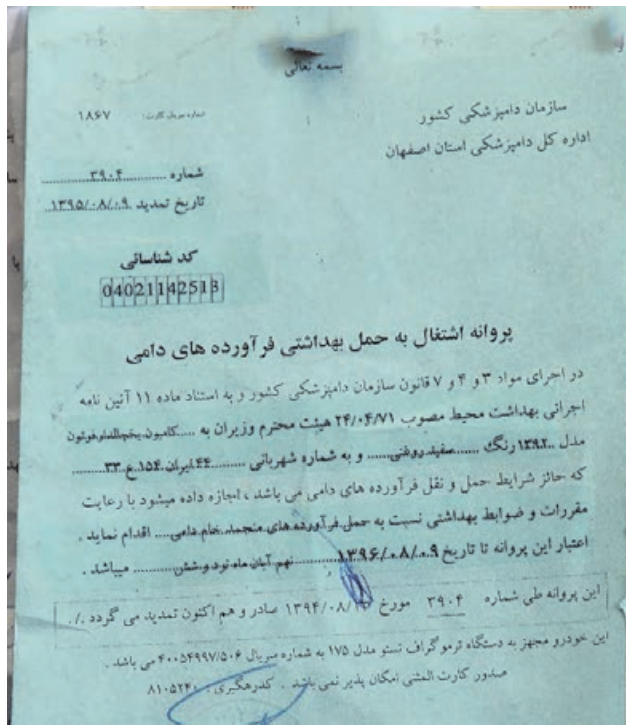 بسمه تعالی
سازمان دامپزشکی کشور
اداره کل دامپزشکی استان اصفهان
شماره سریال کارت: ۱۸۶۷
شماره ............ ۳۹۰۴
تاریخ تمدید ۱۳۹۵/۰۸/۰۹
کد شناسائی
04021142513
پروانه اشتغال به حمل بهداشتی فرآورده های دامی
در اجرای مواد ۳ و ۴ و ۷ قانون سازمان دامپزشکی کشور و به استناد ماده ۱۱ آئین نامه
اجرائی بهداشت محیط مصوب ۲۴/۰۴/۷۱ هیئت محترم وزیران به ..... کامیون یخچالدار فوتون
مدل ..۱۳۹۲ رنگ ....... سفید روغنی ..... و به شماره شهربانی ........ ۴۴ ایران ۱۵۴ ع ۳۳ ........
که حائز شرایط حمل و نقل فرآورده های دامی می باشد ، اجازه داده میشود با رعایت
مقررات و ضوابط بهداشتی نسبت به حمل فرآورده های منجمد خام دامی .... اقدام نماید .
اعتبار این پروانه تا تاریخ ۱۳۹۶/۰۸/۰۹ ........ نهم آبان ماه نود و شش ........ میباشد .
این پروانه طی شماره ۳۹۰۴ مورخ ۱۳۹۴/۰۸/ صادر و هم اکنون تمدید می گردد ./.
این خودرو مجهز به دستگاه ترموگراف تستو مدل ۱۷۵ به شماره سریال ۴۰۰۵۴۹۹۷/۵۰۶ می باشد .
صدور کارت المثنی امکان پذیر نمی باشد . کدرهگیری : ۸۱۰۵۲۴۰